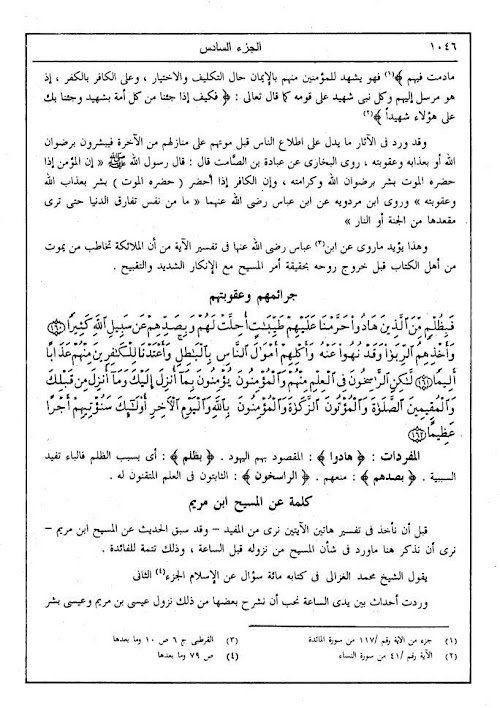 ١٠٤٦ الجزء السادس
مادمت فيهم ﴾(١) فهو يشهد للمؤمنين منهم بالإيمان حال التكليف والاختيار ، وعلى الكافر بالكفر ، إذ
هو مرسل إليهم وكل نبى شهيد على قومه كما قال تعالى : ﴿ فكيف إذا جئنا من كل أمة بشهيد وجئنا بك
على هؤلاء شهيداً ﴾(٢)
وقد ورد فى الآثار ما يدل على اطلاع الناس قبل موتهم على منازلهم من الآخرة فيبشرون برضوان
الله أو بعذابه وعقوبته ، روى البخارى عن عبادة بن الصَّامت قال : قال رسول الله ﷺ « إن المؤمن إذا
حضره الموت بشر برضوان الله وكرامته ، وإن الكافر إذا أحضر ( حضره الموت ) بشر بعذاب الله
وعقوبته » وروى ابن مردويه عن ابن عباس رضى الله عنهما « ما من نفس تفارق الدنيا حتى ترى
مقعدها من الجنة أو النار »
وهذا يؤيد ماروى عن ابن(٣) عباس رضى الله عنها فى تفسير الآية من أن الملائكة تخاطب من يموت
من أهل الكتاب قبل خروج روحه بحقيقة أمر المسيح مع الإنكار الشديد والتقبيح .
جرائمهم وعقوبتهم
فَبِظُلْمٍ مِّنَ ٱلَّذِينَ هَادُوا۟ حَرَّمْنَا عَلَيْهِمْ طَيِّبَٰتٍ أُحِلَّتْ لَهُمْ وَبِصَدِّهِمْ عَن سَبِيلِ ٱللَّهِ كَثِيرًا ﴿١٦٠﴾
وَأَخْذِهِمُ ٱلرِّبَوٰا۟ وَقَدْ نُهُوا۟ عَنْهُ وَأَكْلِهِمْ أَمْوَٰلَ ٱلنَّاسِ بِٱلْبَٰطِلِ وَأَعْتَدْنَا لِلْكَٰفِرِينَ مِنْهُمْ عَذَابًا
أَلِيمًا ﴿١٦١﴾ لَّٰكِنِ ٱلرَّٰسِخُونَ فِى ٱلْعِلْمِ مِنْهُمْ وَٱلْمُؤْمِنُونَ يُؤْمِنُونَ بِمَآ أُنزِلَ إِلَيْكَ وَمَآ أُنزِلَ مِن قَبْلِكَ
وَٱلْمُقِيمِينَ ٱلصَّلَوٰةَ وَٱلْمُؤْتُونَ ٱلزَّكَوٰةَ وَٱلْمُؤْمِنُونَ بِٱللَّهِ وَٱلْيَوْمِ ٱلْءَاخِرِ أُو۟لَٰٓئِكَ سَنُؤْتِيهِمْ أَجْرًا
عَظِيمًا ﴿١٦٢﴾
المفردات : ﴿ هادوا ﴾ : المقصود بهم اليهود . ﴿ بظلم ﴾ : أى بسبب الظلم فالباء تفيد
السببية . ﴿ بصدهم ﴾ : منعهم . ﴿ الراسخون ﴾ : الثابتون فى العلم المتقنون له .
كلمة عن المسيح ابن مريم
قبل أن نأخذ فى تفسير هاتين الآيتين نرى من المفيد – وقد سبق الحديث عن المسيح ابن مريم –
نرى أن نذكر هنا ماورد فى شأن المسيح من نزوله قبل الساعة ، وذلك تتمة للفائدة .
يقول الشيخ محمد الغزالى فى كتابه مائة سؤال عن الإسلام الجزء(٤) الثانى
وردت أحداث بين يدى الساعة نحب أن نشرح بعضها من ذلك نزول عيسى بن مريم وعيسى بشر
(١) جزء من الآية رقم /١١٧ من سورة المائدة (٣) القرطبى ج ٦ ص ١٠ وما بعدها
(٢) الآية رقم /٤١ من سورة النساء (٤) ص ٧٩ وما بعدها